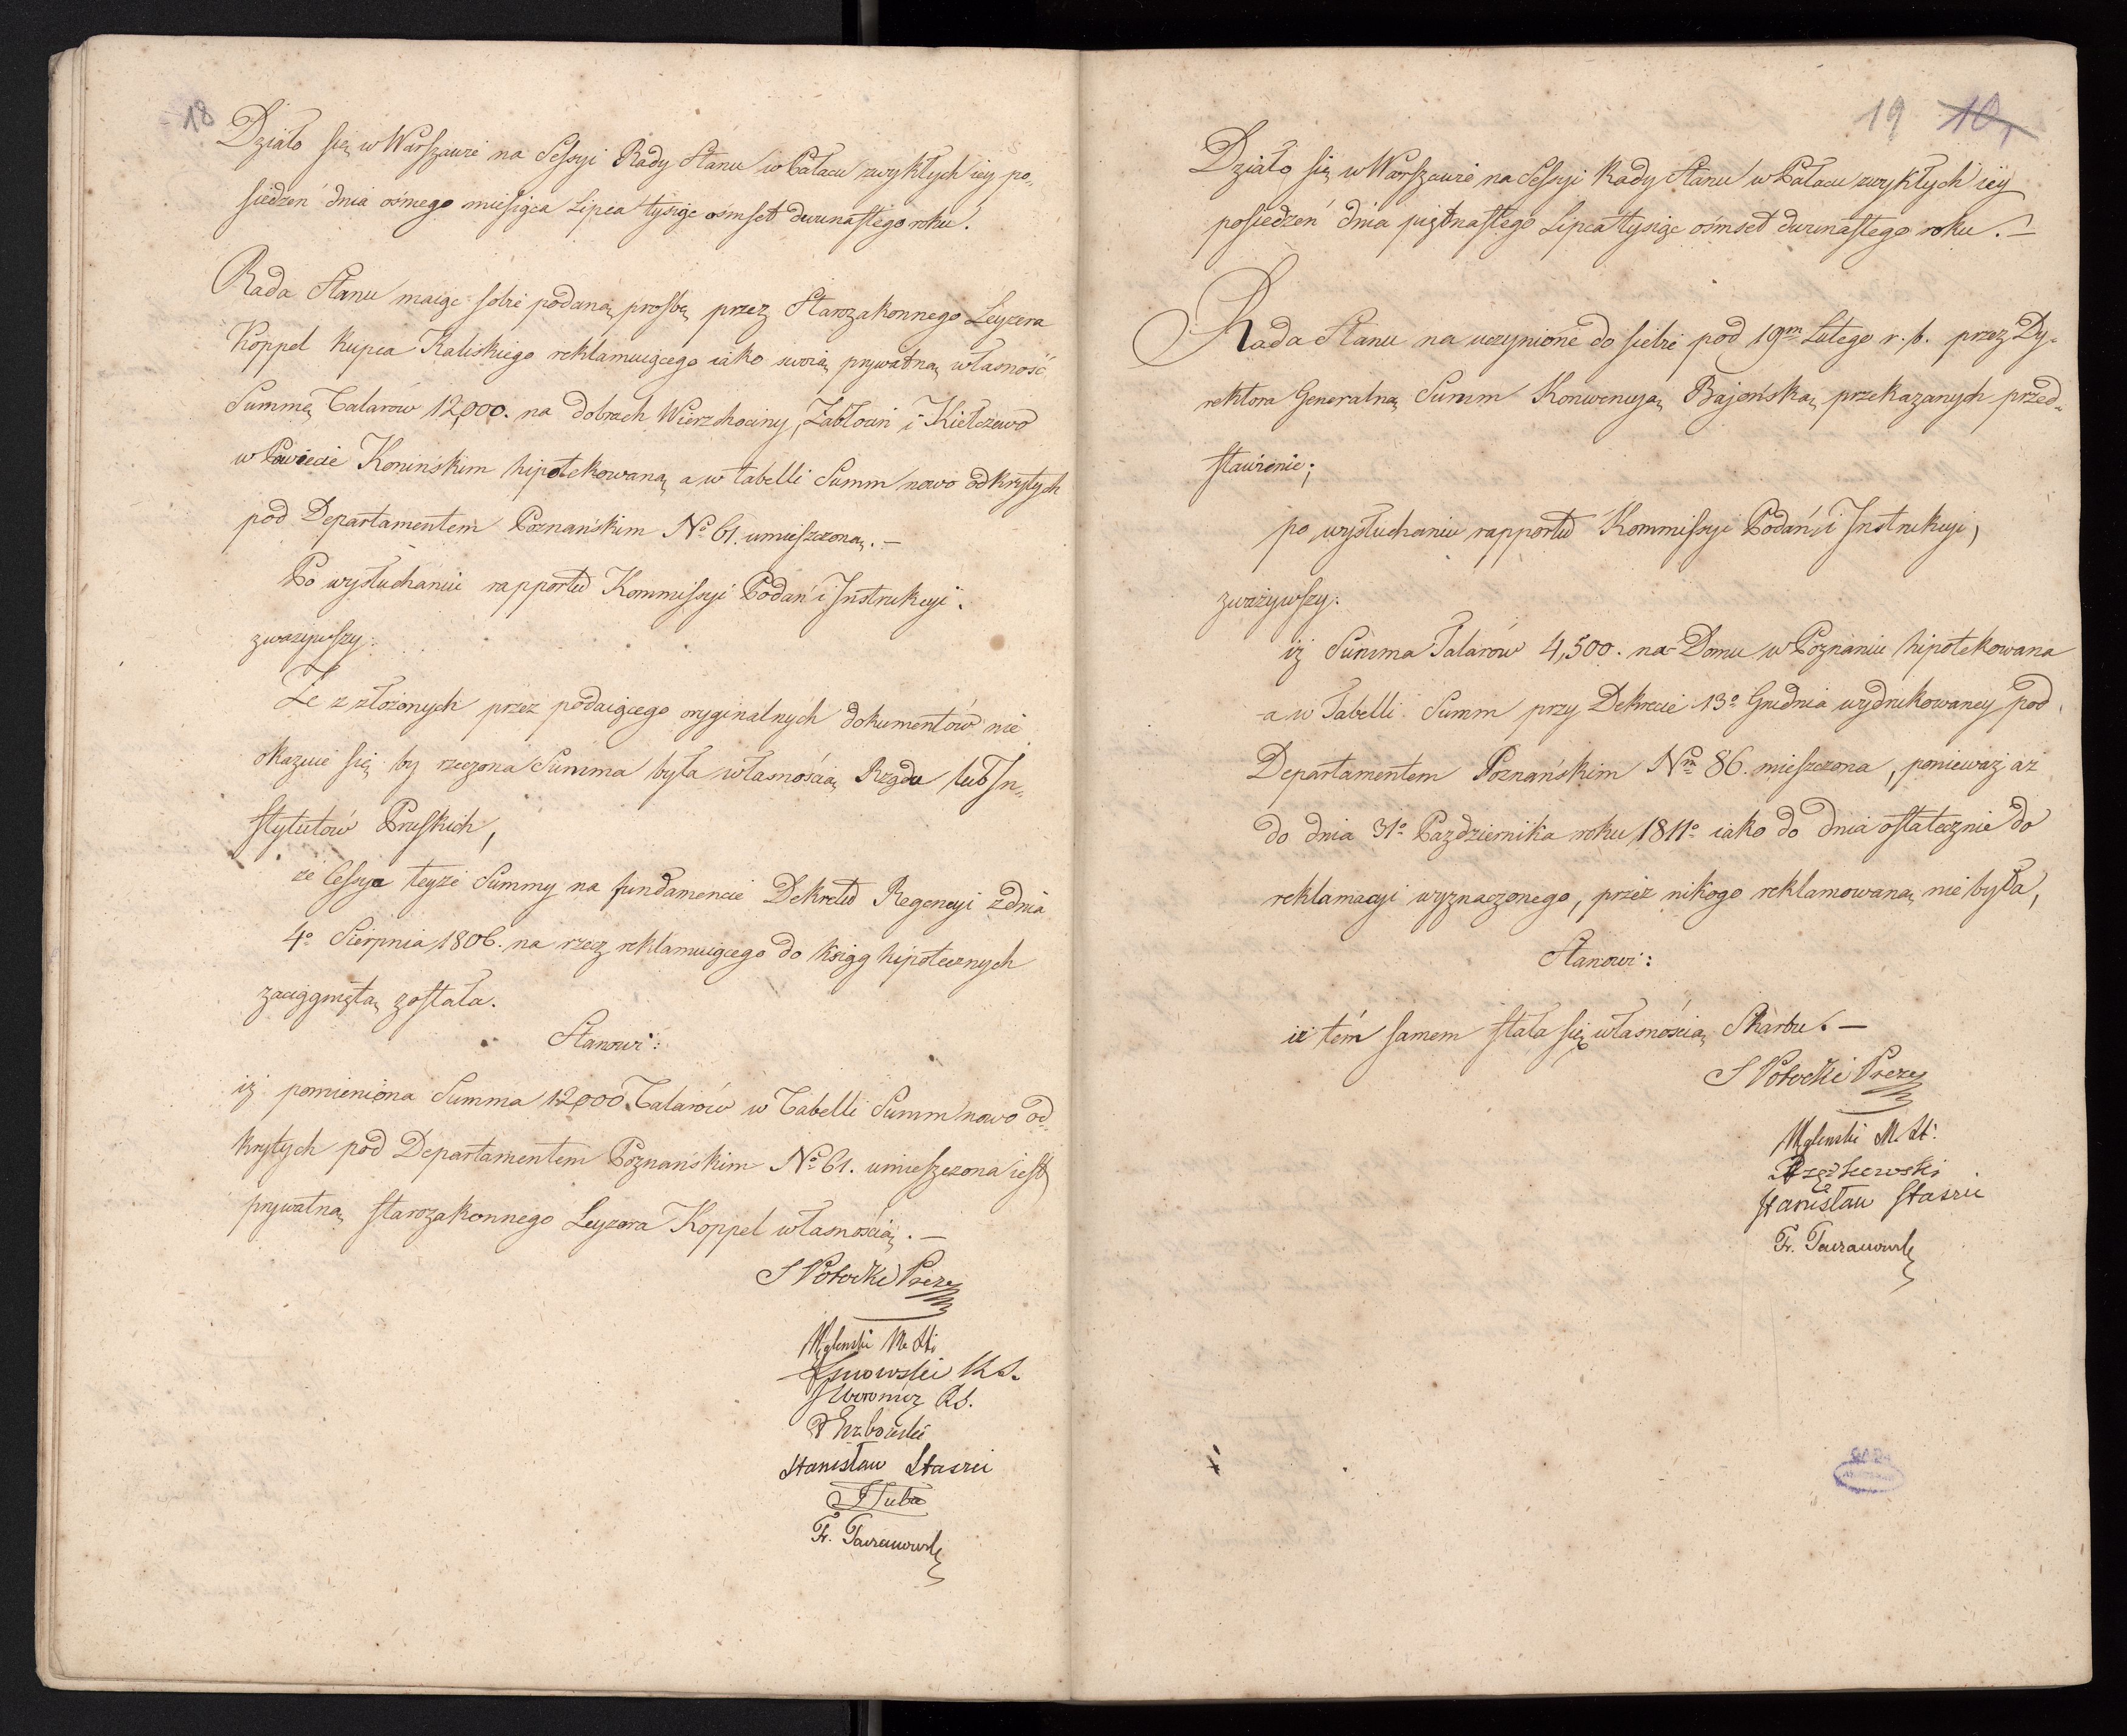 18
Działo się w Warszawie na Sessyi Rady Stanu w Pałacu zwykłych iey po„
siedzeń dnia ósmego miesiąca Lipca tysiąc ośmset dwunastego roku.
Rada Stanu maiąc sobie podaną prosbę przez Starozakonnego Leyzera
Koppel Kupca Kaliskiego reklamuiącego iako swoią prywatną własność
Summę Talarów 12,000. na dobrach Wierzchociny, Zabłocin i Kiełczewo
w Powiecie Konińskim hipotekowaną a w tabelli Summ nowo odkrytych
pod Departamentem Poznańskim No 61. umieszczoną. —
Po wysłuchaniu rapportu Kommissyi Podań i Instrukcyi.
zważywszy:
Że z złożonych przez podaiącego oryginalnych dokumentów nie
okazuie się by rzeczona Summa była własnością Rządu lub In„
stytutów Pruskich,
że Cessya teyże Summy na fundamencie Dekretu Regencyi z dnia
4o Sierpnia 1806. na rzecz reklamuiącego do Ksiąg hipotecznych
zaciągniętą została.
Stanowi:
iż pomieniona Summa 12000 Talarów w Tabelli Summ nowo od„
krytych pod Departamentem Poznańskim No 61. umieszczona iest
prywatną starozakonnego Leyzora Koppel własnością. —
S Potocki Prezes
Węglenski M. St.
Woronicz R.S.
Stanisław Staszic
19 10,
Działo się w Warszawie na Sessyi Rady Stanu w Pałacu zwykłych iey
posiedzeń dnia piętnastego Lipca tysiąc ośmset dwunastego roku. —
Rada Stanu na uczynione do siebie pod 19m Lutego r. b. przez Dy„
rektora Generalną Summ Konwencyą Bajońską przekazanych przed„
stawienie;
po wysłuchaniu rapportu Kommissyi Podań i Instrukcyi,
zważywszy:
iż Summa Talarów 4,500. na Domu w Poznaniu hipotekowana
a w Tabelli Summ przy Dekrecie 13o Grudnia wydrukowaney pod
Departamentem Poznańskim Nm 86. mieszczona, ponieważ aż
do dnia 31o Pazdziernika roku 1811o iako do dnia ostatecznie do
reklamacyi wyznaczonego, przez nikogo reklamowaną nie była,
Stanowi:
iż tém samem stała się własnością Skarbu. —
S Potocki Prezes
Węglenski M. St.
Stanisław Staszic